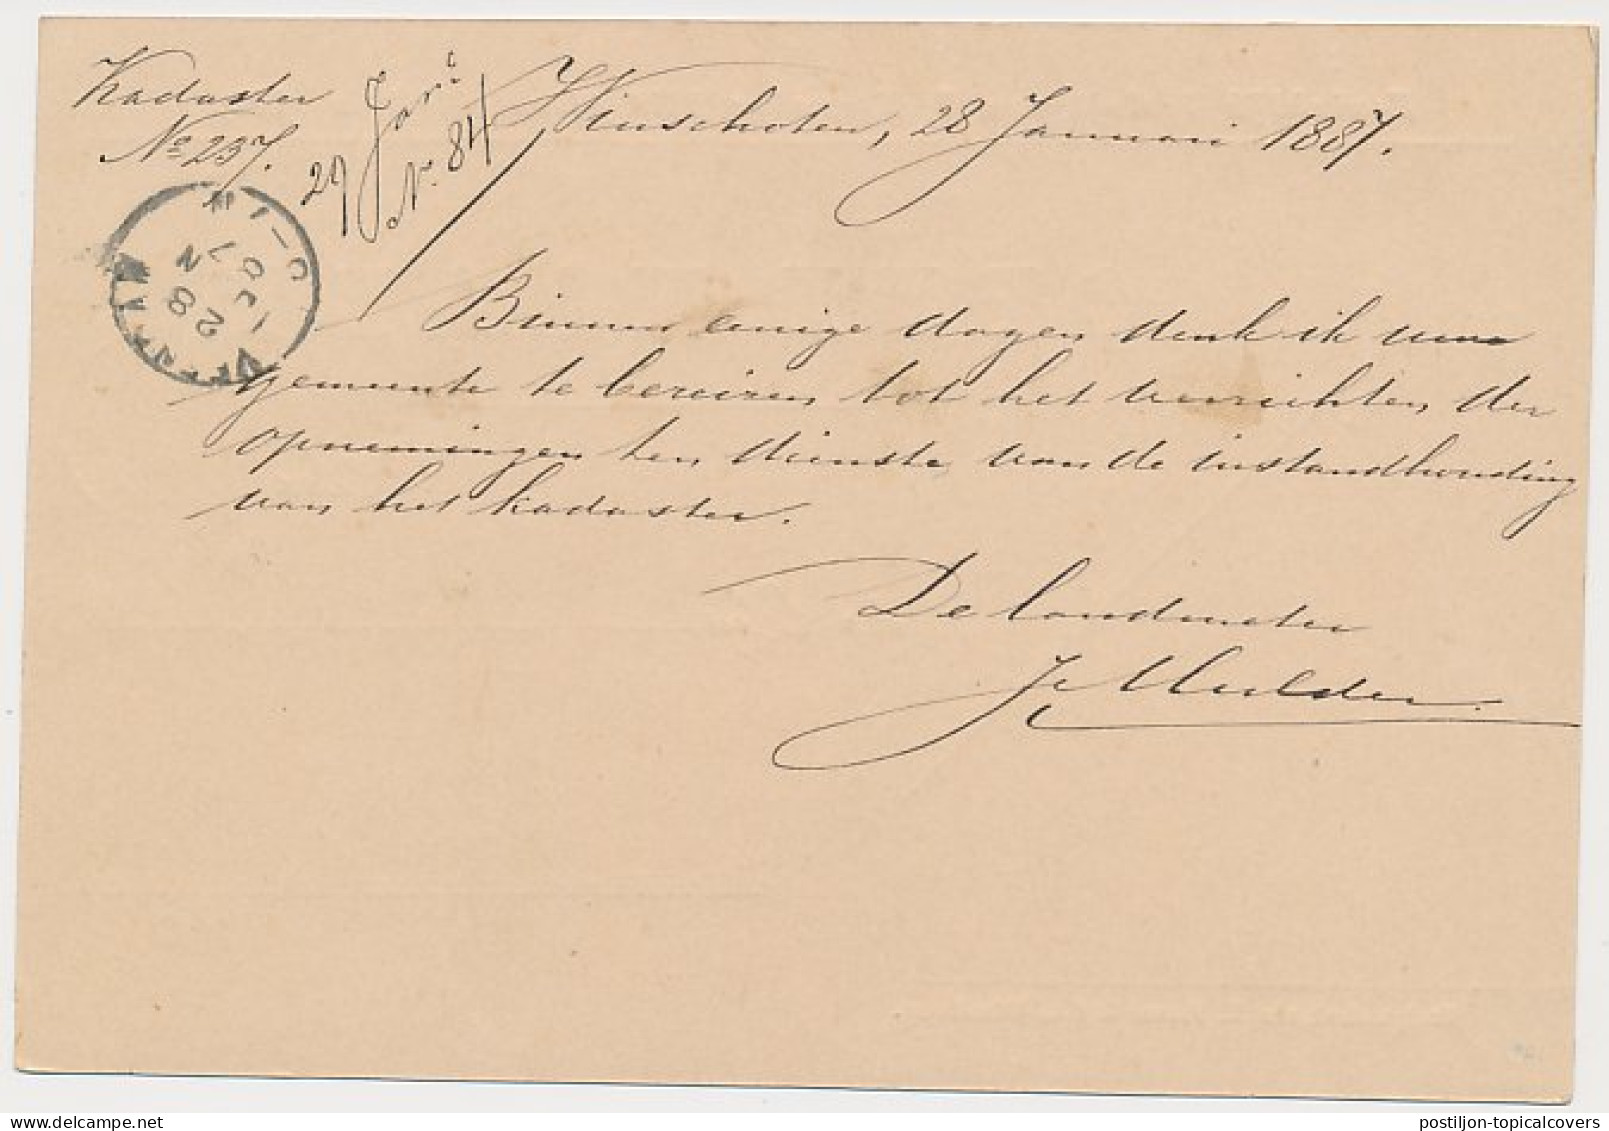 Kadaster
No 237.
29 Jari
No. 84
Winschoten, 28 Januari 1887.
Binnen eenige dagen denk ik uwe
gemeente te bereizen tot het verrichten der
opnemingen ten dienste van de instandhouding
van het kadaster.
De landmeter
Mulder.
28
postiljon-topicalcovers